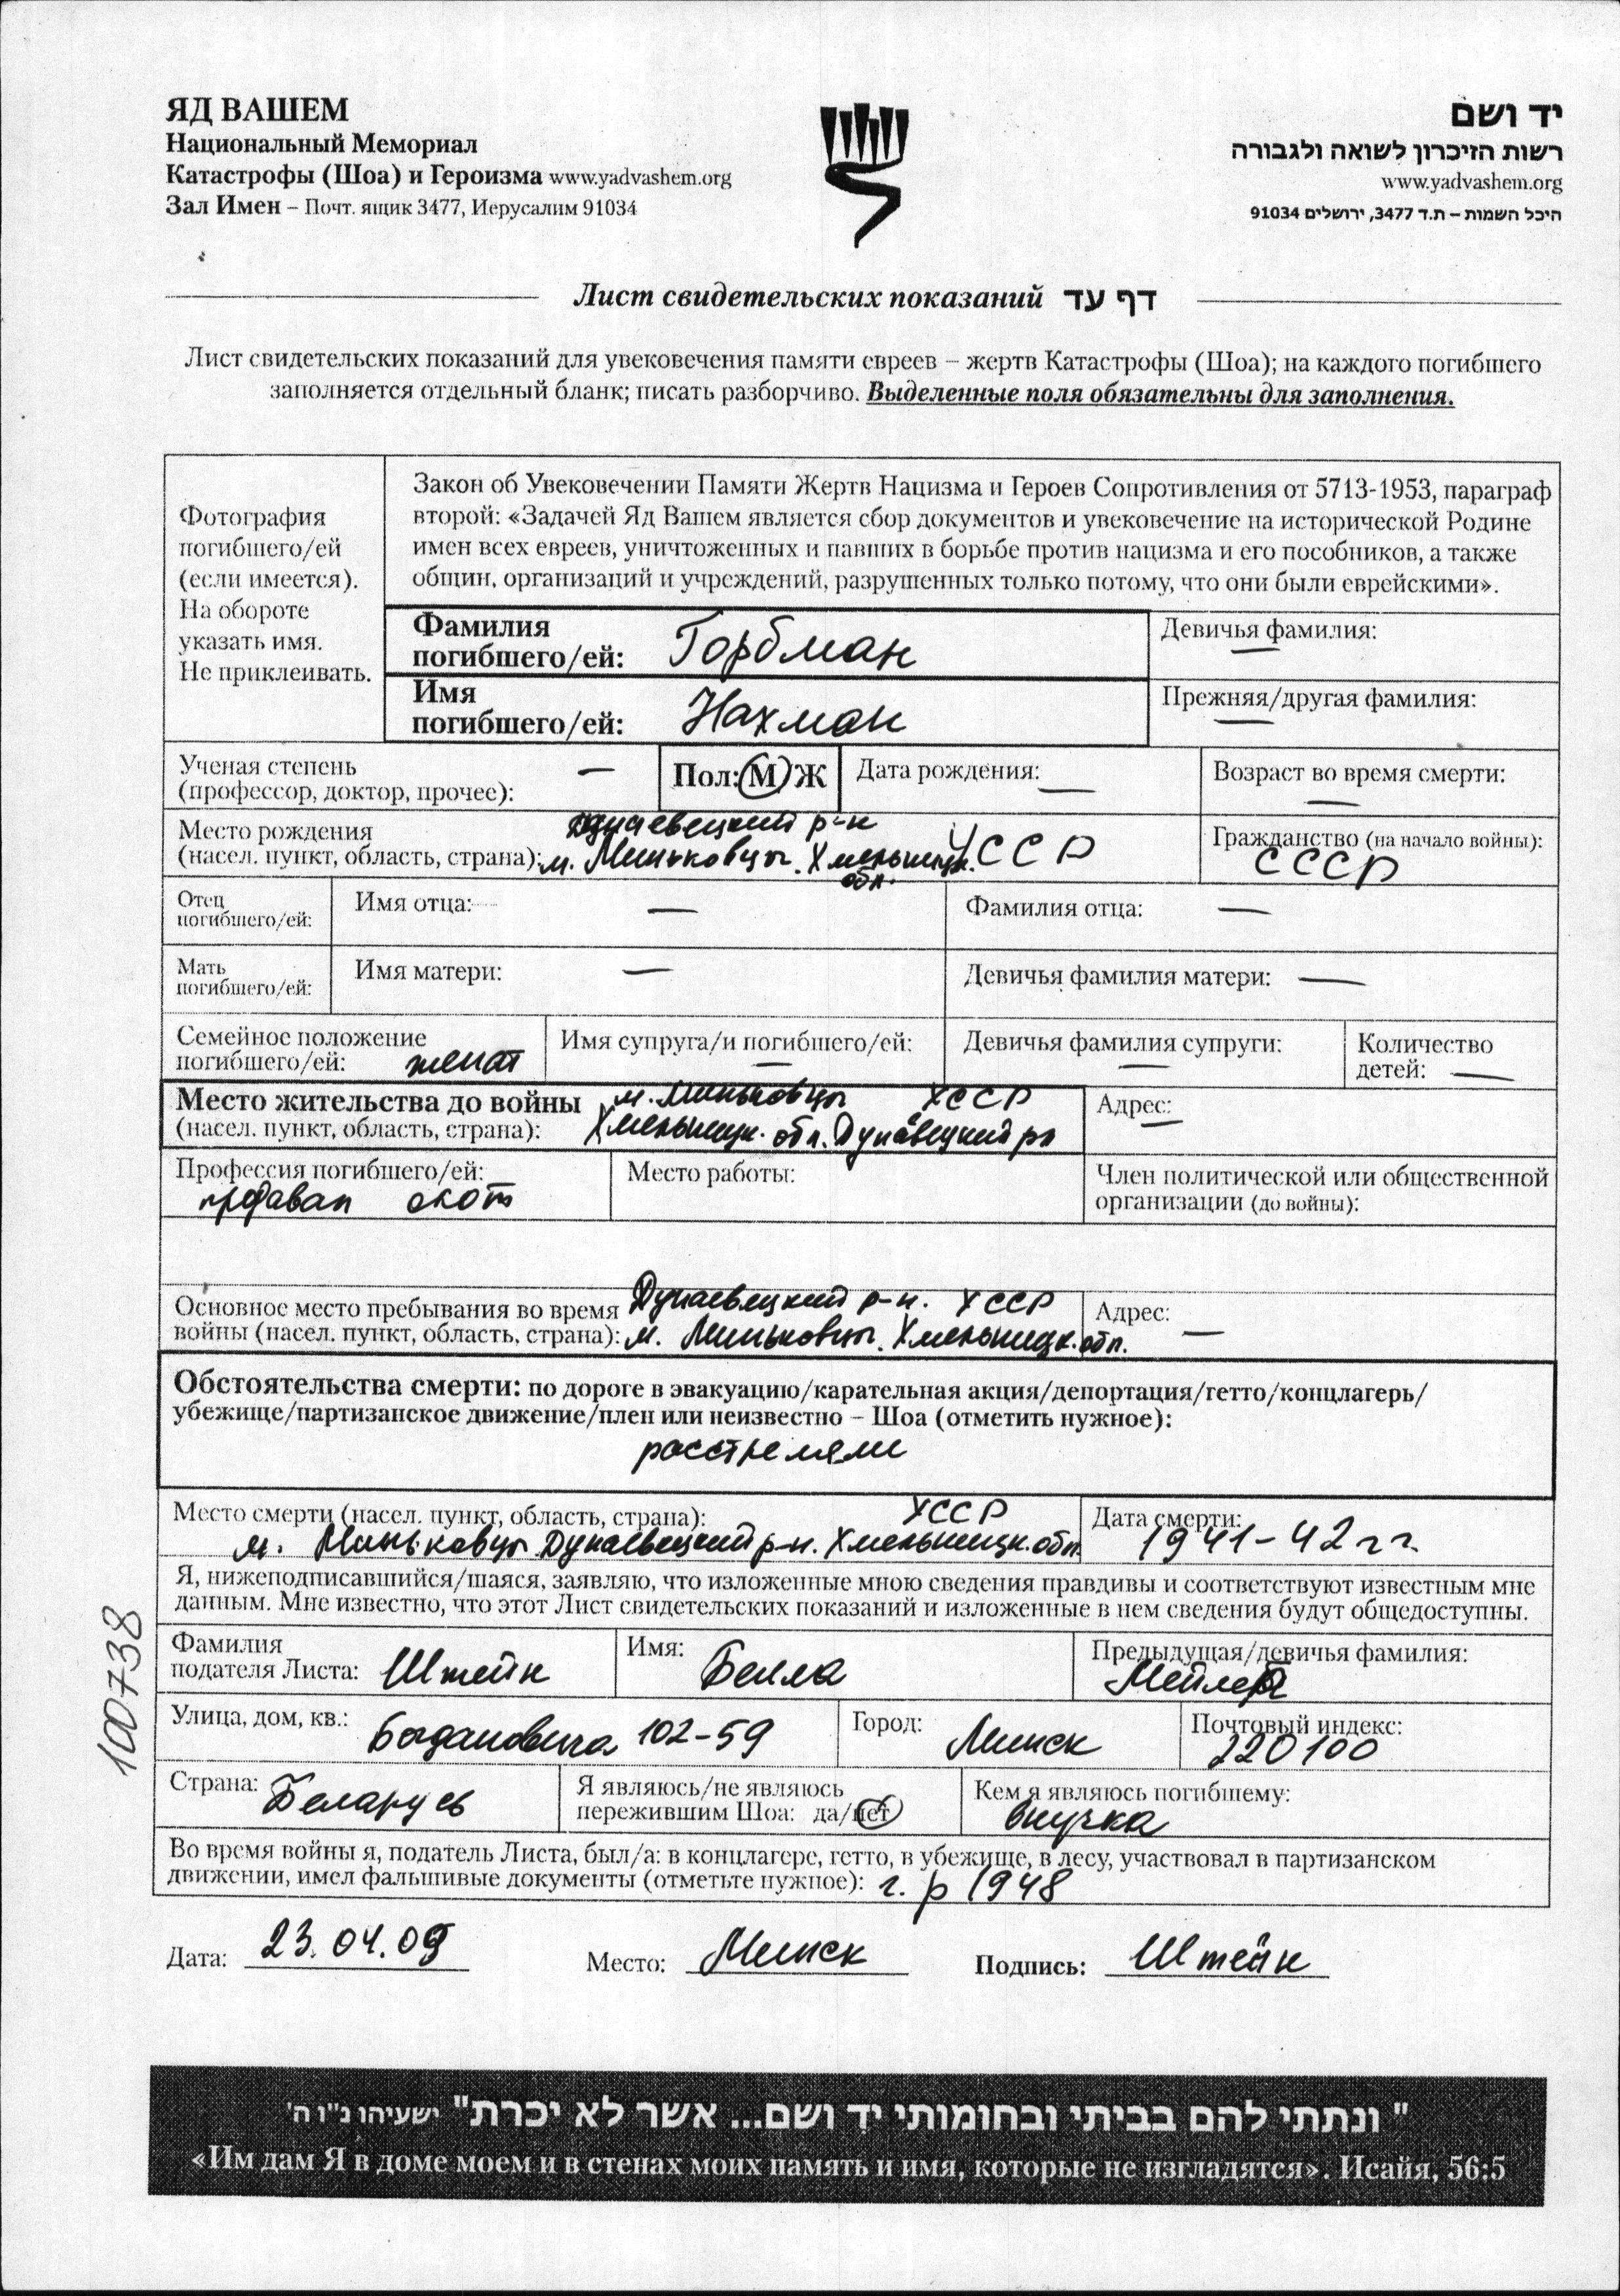 ЯД ВАШЕМ
Национальный Мемориал
Катастрофы (Шоа) и Героизма www.yadvashem.org
Зал Имен – Почт. ящик 3477, Иерусалим 91034
יד ושם
רשות הזיכרון לשואה ולגבורה
www.yadvashem.org
היכל השמות – ת.ד 3477, ירושלים 91034
Лист свидетельских показаний דף עד
Лист свидетельских показаний для увековечения памяти евреев – жертв Катастрофы (Шоа); на каждого погибшего
заполняется отдельный бланк; писать разборчиво. Выделенные поля обязательны для заполнения.
Фотография
погибшего/ей
(если имеется).
На обороте
указать имя.
Не приклеивать.
Закон об Увековечении Памяти Жертв Нацизма и Героев Сопротивления от 5713-1953, параграф
второй: «Задачей Яд Вашем является сбор документов и увековечение на исторической Родине
имен всех евреев, уничтоженных и павших в борьбе против нацизма и его пособников, а также
общин, организаций и учреждений, разрушенных только потому, что они были еврейскими».
Фамилия
погибшего/ей: Горбман
Девичья фамилия: —
Имя
погибшего/ей: Нахман
Прежняя/другая фамилия: —
Ученая степень —
(профессор, доктор, прочее):
Пол: М Ж
Дата рождения: —
Возраст во время смерти: —
Место рождения Дунаевецкий р-н
(насел. пункт, область, страна): м. Миньковцы. Хмельницк. обл. УССР
Гражданство (на начало войны):
СССР
Отец
погибшего/ей:
Имя отца: —
Фамилия отца: —
Мать
погибшего/ей:
Имя матери: —
Девичья фамилия матери: —
Семейное положение
погибшего/ей: женат
Имя супруга/и погибшего/ей: —
Девичья фамилия супруги: —
Количество
детей: —
Место жительства до войны м. Миньковцы УССР
(насел. пункт, область, страна): Хмельницк. обл. Дунаевецкий рн
Адрес: —
Профессия погибшего/ей:
продавал скот
Место работы:
Член политической или общественной
организации (до войны):
Основное место пребывания во время Дунаевецкий р-н. УССР
войны (насел. пункт, область, страна): м. Миньковцы. Хмельницк. обл.
Адрес: —
Обстоятельства смерти: по дороге в эвакуацию/карательная акция/депортация/гетто/концлагерь/
убежище/партизанское движение/плен или неизвестно – Шоа (отметить нужное):
расстреляли
Место смерти (насел. пункт, область, страна): УССР
м. Миньковцы Дунаевецкий р-н. Хмельницк. обл.
Дата смерти:
1941-42 гг.
Я, нижеподписавшийся/шаяся, заявляю, что изложенные мною сведения правдивы и соответствуют известным мне
данным. Мне известно, что этот Лист свидетельских показаний и изложенные в нем сведения будут общедоступны.
Фамилия
подателя Листа: Штейн
Имя: Белла
Предыдущая/девичья фамилия:
Мейлер
Улица, дом, кв.: Богдановича 102-59
Город: Минск
Почтовый индекс:
220100
Страна: Беларусь
Я являюсь/не являюсь
пережившим Шоа: да/нет
Кем я являюсь погибшему:
внучка
Во время войны я, податель Листа, был/а: в концлагере, гетто, в убежище, в лесу, участвовал в партизанском
движении, имел фальшивые документы (отметьте нужное): г. р 1948
Дата: 23.04.09
Место: Минск
Подпись: Штейн
100738
" ונתתי להם בביתי ובחומותי יד ושם... אשר לא יכרת" ישעיהו נ"ו ה'
«Им дам Я в доме моем и в стенах моих память и имя, которые не изгладятся». Исайя, 56:5